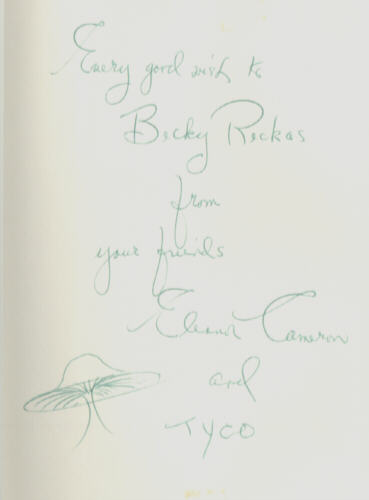 Every good wish to
Becky Reckas
from
your friends
Eleanor Cameron
and
TYCO